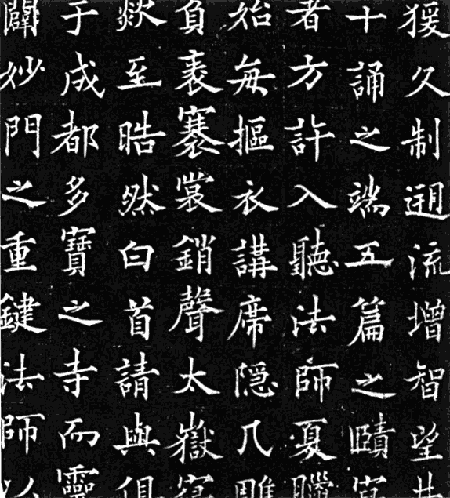 猨久制逈流增智望
十誦之端五篇之賾寔
者方許入聽法師夏臘
始每摳衣講席隱几雕
負袠褰裳銷聲太嶽
欻至晧然白首請與俱
于成都多寶之寺而靈
闢妙門之重鍵法師以